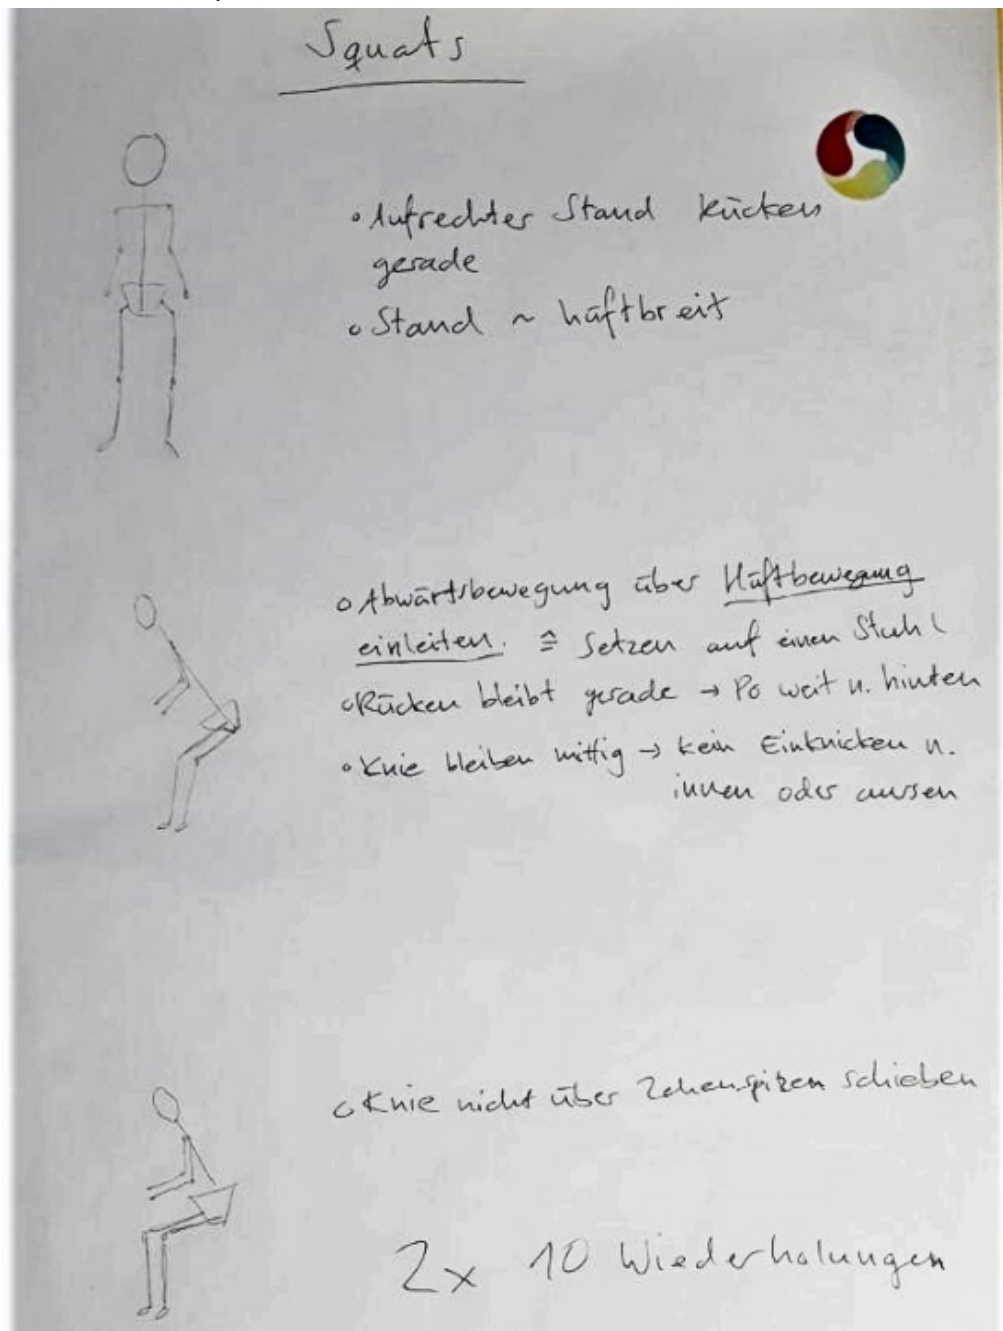 Squats
• Aufrechter Stand Rücken
gerade
o Stand ~ hüftbreit
o Abwärtsbewegung über Hüftbewegung
einleiten. ≙ Setzen auf einen Stuhl
o Rücken bleibt gerade → Po weit n. hinten
• Knie bleiben mittig → kein Einknicken n.
innen oder aussen
o Knie nicht über Zehenspitzen schieben
2x 10 Wiederholungen